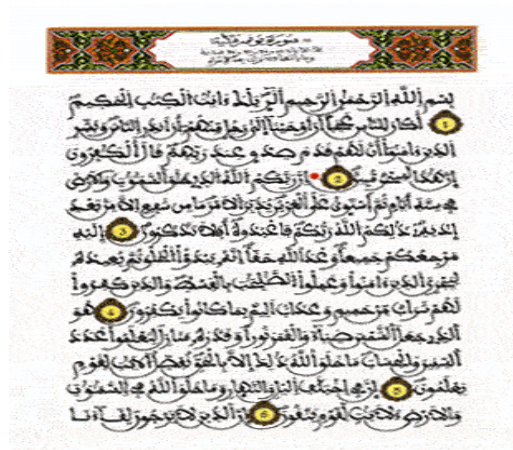 سورة يونس مكية
بسم الله الرحمن الرحيم الر تلك ءايت الكتب الحكيم
1 أكان للناس عجبا أن أوحينا إلى رجل منهم أن أنذر الناس وبشر
الذين ءامنوا أن لهم قدم صدق عند ربهم قال الكفرون
إن هذا لسحر مبين 2 إن ربكم الله الذي خلق السموت والأرض
في ستة أيام ثم استوى على العرش يدبر الأمر ما من شفيع إلا من بعد
إذنه ذلكم الله ربكم فاعبدوه أفلا تذكرون 3 إليه
مرجعكم جميعا وعد الله حقا إنه يبدؤا الخلق ثم يعيده
ليجزي الذين ءامنوا وعملوا الصلحت بالقسط والذين كفروا
لهم شراب من حميم وعذاب أليم بما كانوا يكفرون 4 هو
الذي جعل الشمس ضياء والقمر نورا وقدره منازل لتعلموا عدد
السنين والحساب ما خلق الله ذلك إلا بالحق نفصل الأيت لقوم
يعلمون 5 إن في اختلف اليل والنهار وما خلق الله في السموت
والأرض لأيت لقوم يتقون 6 إن الذين لا يرجون لقاءنا